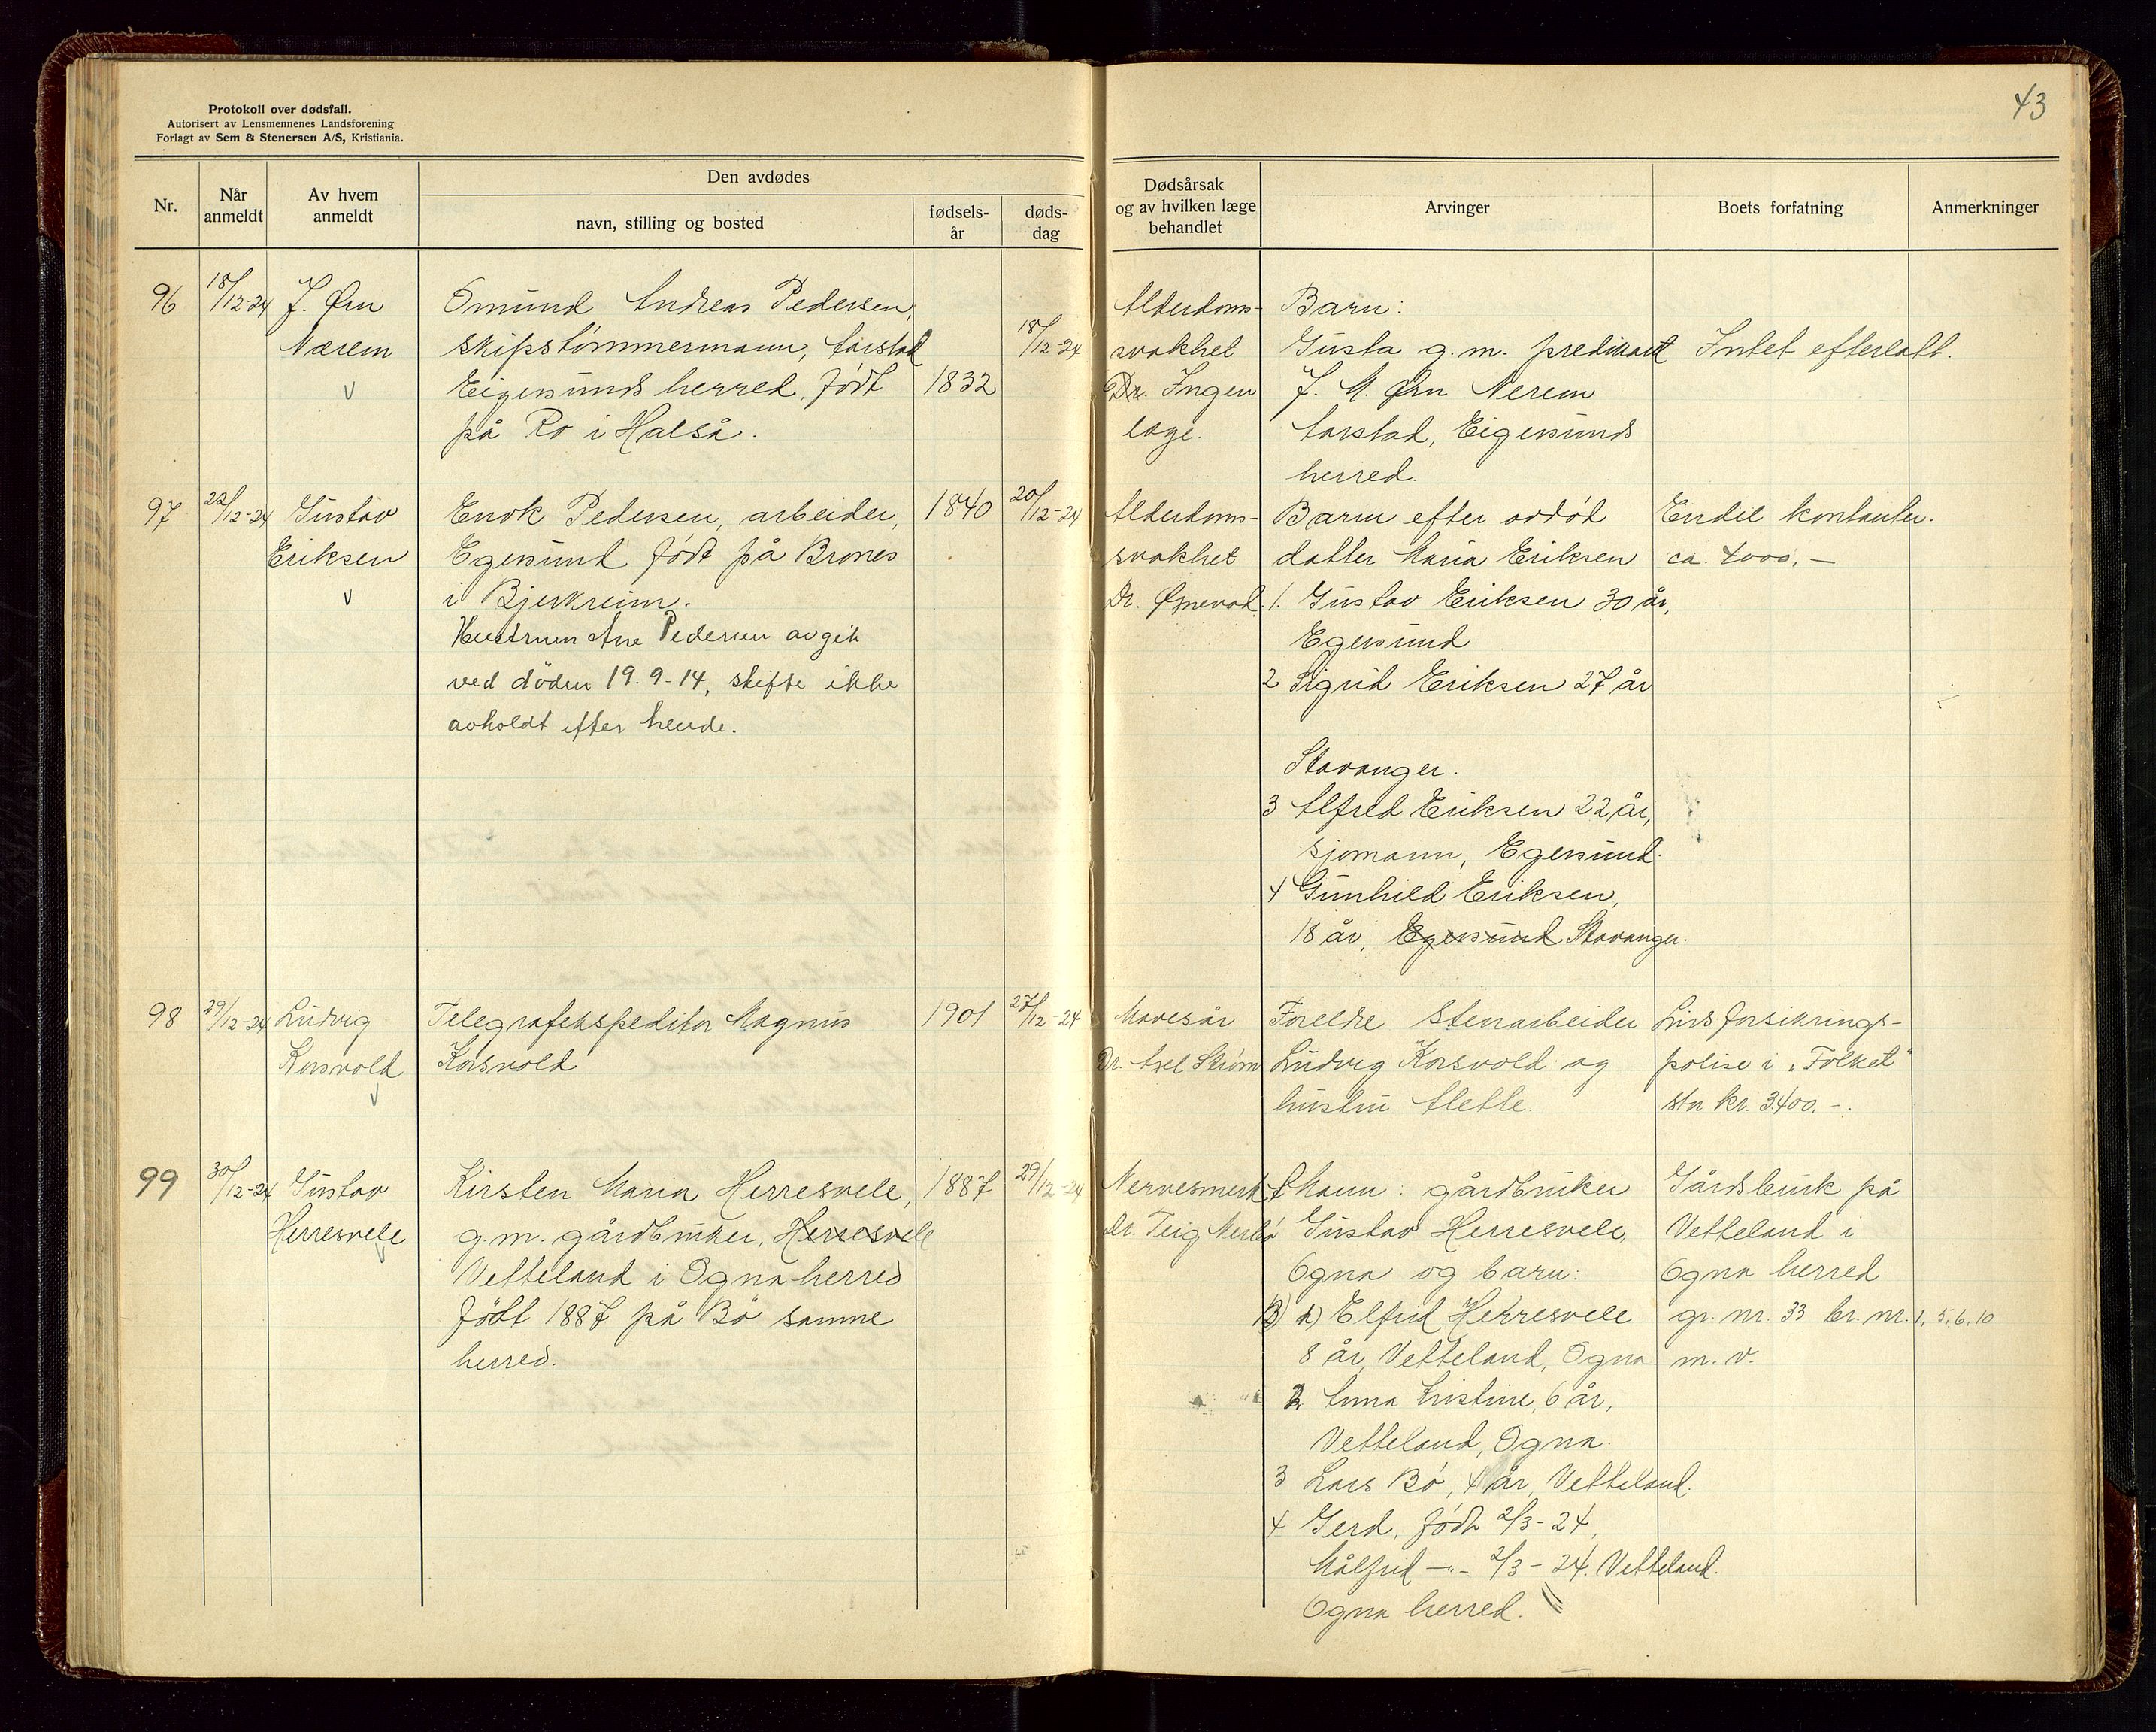 Protokoll over dødsfall.
Autorisert av Lensmennenes Landsforening
Forlagt av Sem & Stenersen A/S, Kristiania.
43
Nr.
Når anmeldt
Av hvem anmeldt
Den avdødes
navn, stilling og bosted
fødsels-år
døds-dag
Dødsårsak og av hvilken læge behandlet
Arvinger
Boets forfatning
Anmerkninger
96
18/12-24
J. Ørn
Nærem
Omund Andreas Pedersen,
skipstømmermann, Årstad
Eigersunds herred, født
på Ro i Halså.
1832
18/12-24
Alderdoms-
svakhet
Dr. Ingen
læge.
Barn:
Gusta g.m. predikant
J. M. Ørn Nerem
Årstad, Eigersunds
herred.
Intet efterlatt.
97
22/12-24
Gustav
Eriksen
Enok Pedersen, arbeider,
Egersund født på Brones
i Bjerkreim.
Hustruen Ane Pedersen avgik
ved döden 19.9-14, skifte ikke
avholdt efter hende.
1840
20/12-24
Alderdoms-
svakhet
Barn efter avdød
datter Maria Eriksen
1. Gustav Eriksen 30 år,
Egersund
2 Sigrid Eriksen 27 år
Stavanger.
3 Alfred Eriksen 22 år,
sjømann, Egersund.
4 Gunhild Eriksen,
18 år, Egersund Stavanger.
Endel kontanter.
ca. 4000,-
98
29/12-24
Ludvig
Korsvold
Telegrafekspeditør Magnus
Korsvold
1901
27/12-24
Mavesår
Dr. Axel Strøm
Foreldre Stenarbeider
Ludvig Korsvold og
hustru Alette.
Livsforsikrings-
polise i "Folket"
stor kr. 3400.-.
99
30/12-24
Gustav
Herresvele
Kirsten Maria Herresvele,
g.m. gårdbruker, Herresvele
Vetteland i Ogna herred
født 1887 på Bö samme
herred.
1887
29/12-24
Dr. Teig Nerbø
Mann: gårdbruker
Gustav Herresvele,
Ogna og barn:
1) Elfrid Herresvele
8 år, Vetteland, Ogna
2 Anna Kristine, 6 år,
Vetteland, Ogna.
3 Lars Bö, 4 år, Vetteland.
4 Gerd, født 2/3-24,
Målfrid -"- 2/3-24. Vetteland.
Ogna herred.
Gårdsbruk på
Vetteland i
Ogna herred
gr. nr. 33 br. nr. 1, 5, 6, 10
m. v.